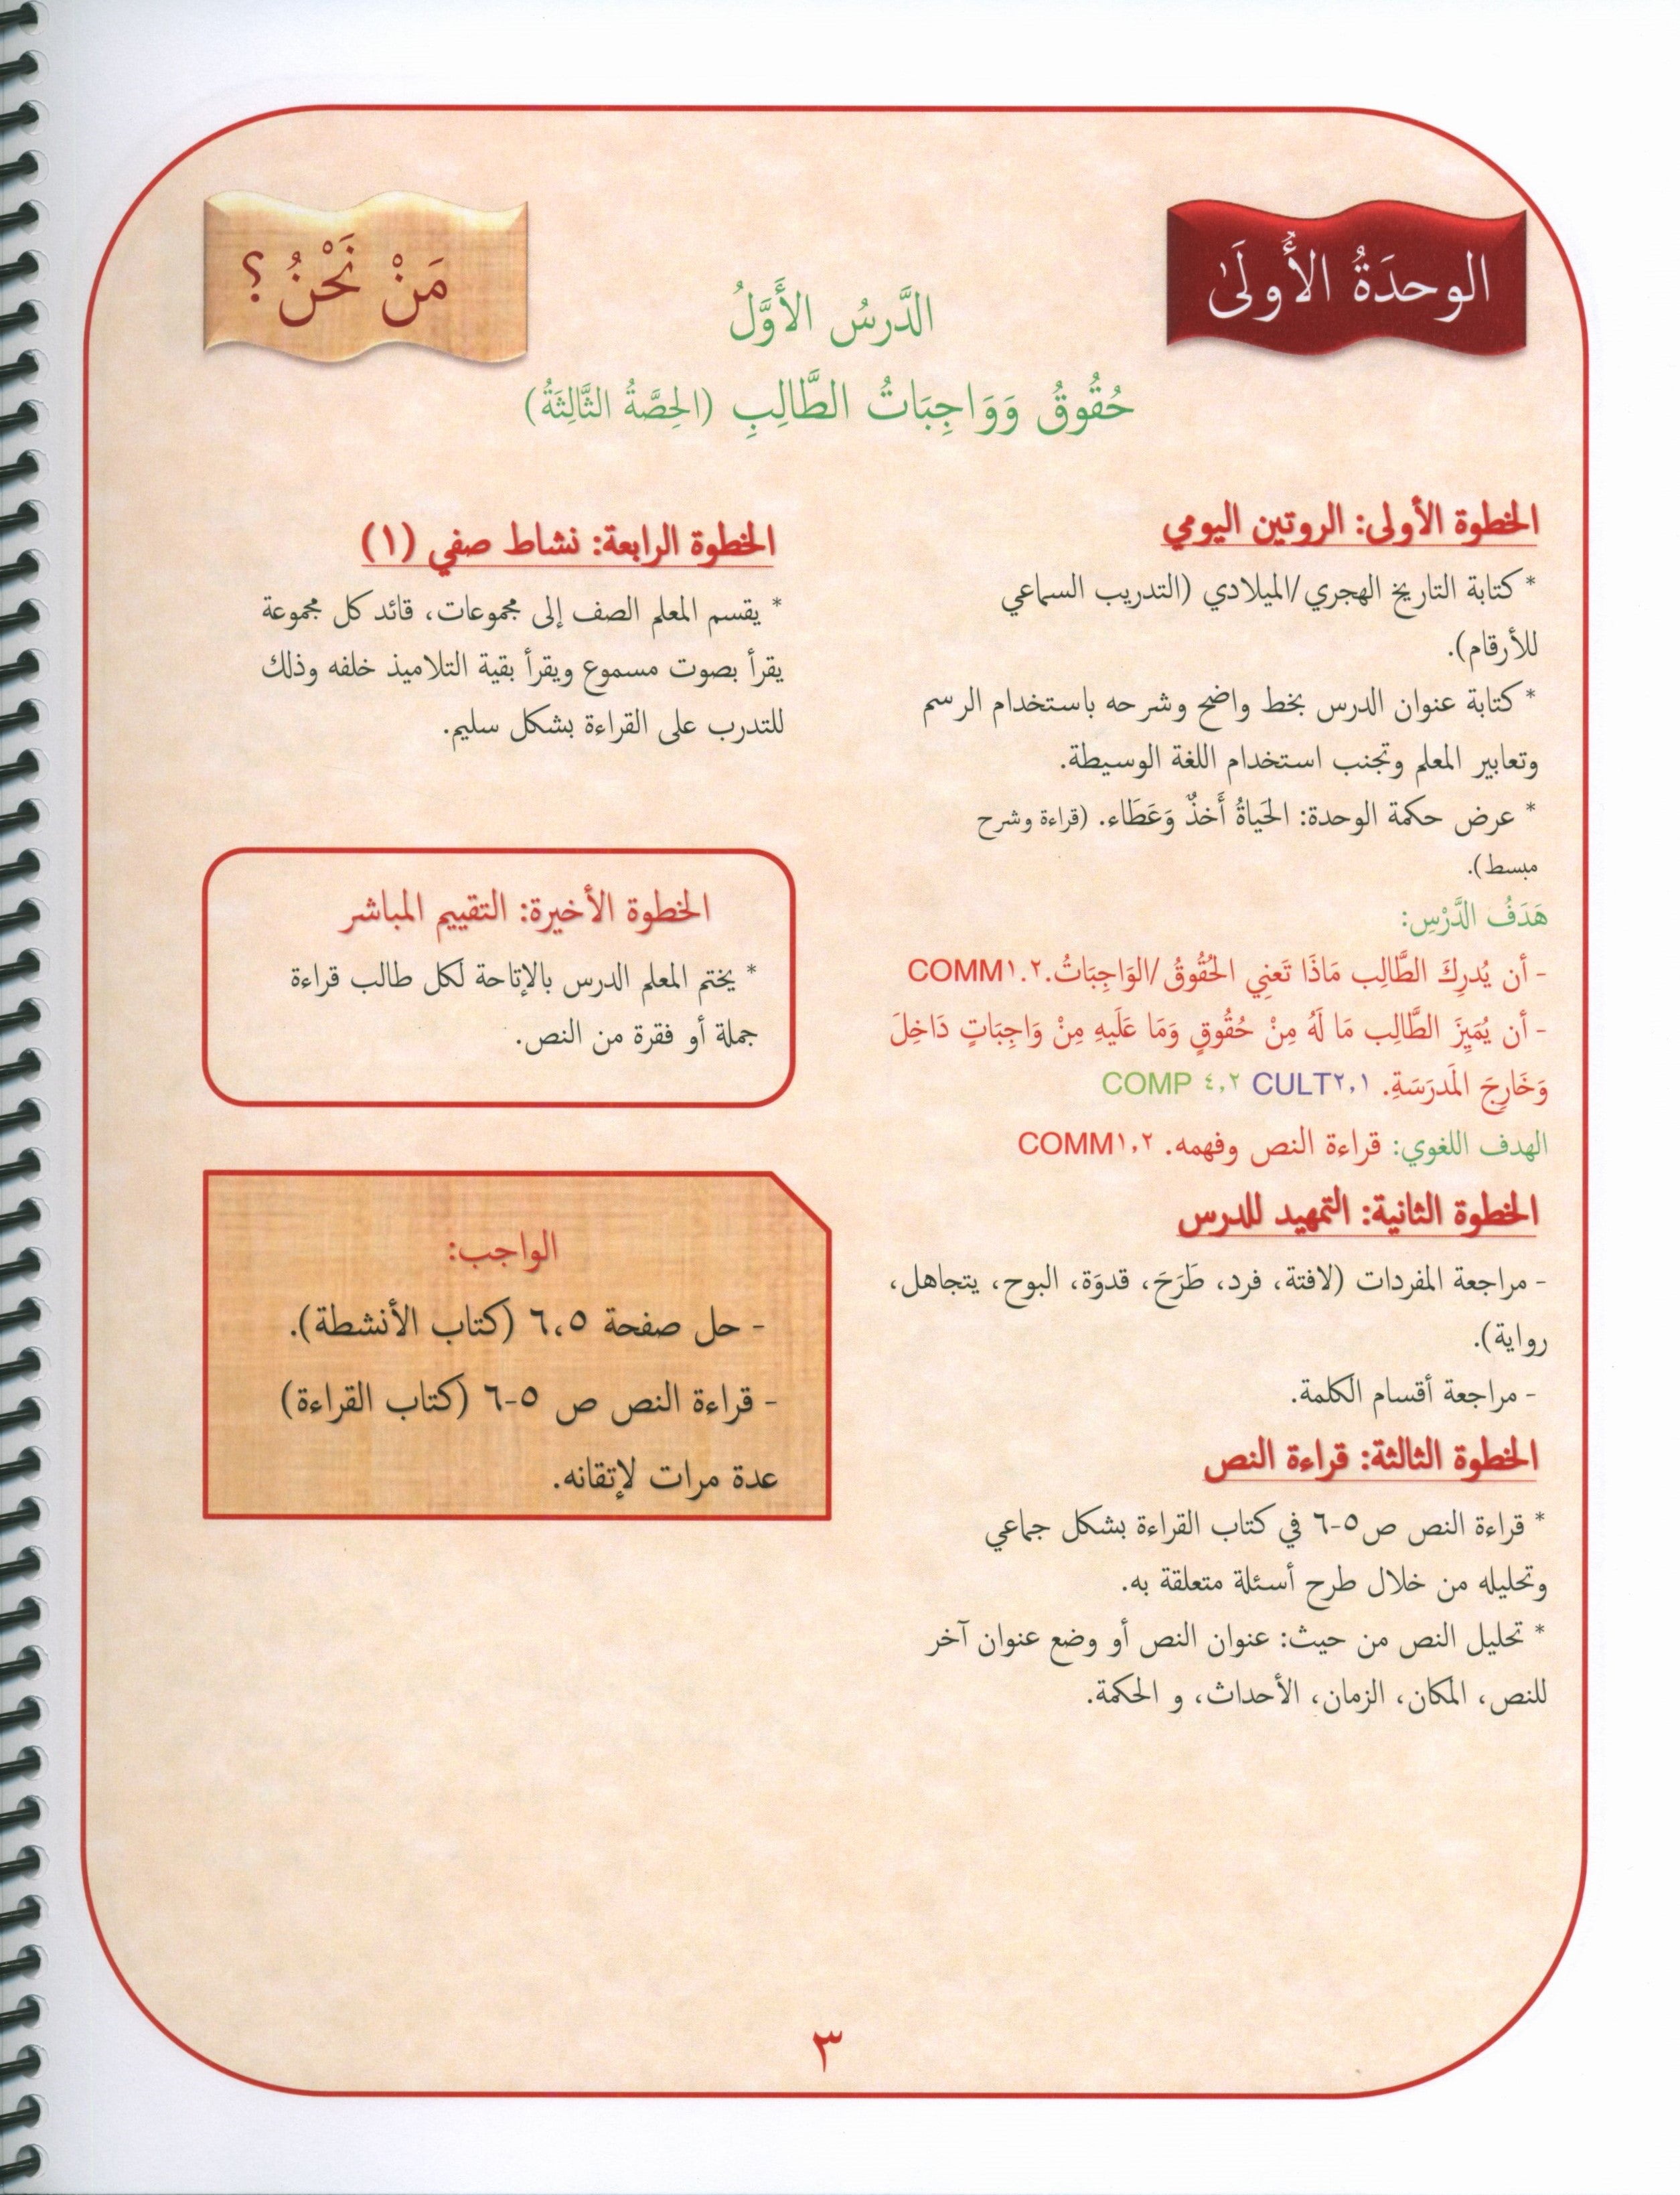 الوحدَةُ الأُولَىٰ
مَنْ نَحْنُ؟
الدَّرسُ الأَوَّلُ
حُقُوقُ وَوَاجِبَاتُ الطَّالِبِ (الحِصَّةُ الثَّالِثَةُ)
الخطوة الأولى: الروتين اليومي
* كتابة التاريخ الهجري/الميلادي (التدريب السماعي
للأرقام).
* كتابة عنوان الدرس بخط واضح وشرحه باستخدام الرسم
وتعابير المعلم وتجنب استخدام اللغة الوسيطة.
* عرض حكمة الوحدة: الحَياةُ أَخذٌ وَعَطَاء. (قراءة وشرح
مبسط).
هَدَفُ الدَّرْسِ:
- أن يُدرِكَ الطَّالِب مَاذَا تَعنِي الحُقُوقُ/الوَاجِبَاتُ.COMM١.٢
- أن يُمَيِزَ الطَّالِب مَا لَهُ مِنْ حُقُوقٍ وَمَا عَلَيهِ مِنْ وَاجِبَاتٍ دَاخِلَ
وَخَارِجَ المَدرَسَةِ. CULT٢,١ COMP ٤,٢
الهدف اللغوي: قراءة النص وفهمه. COMM١,٢
الخطوة الثانية: التمهيد للدرس
- مراجعة المفردات (لافتة، فرد، طَرَحَ، قدوَة، البوح، يتجاهل،
رواية).
- مراجعة أقسام الكلمة.
الخطوة الثالثة: قراءة النص
* قراءة النص ص٥-٦ في كتاب القراءة بشكل جماعي
وتحليله من خلال طرح أسئلة متعلقة به.
* تحليل النص من حيث: عنوان النص أو وضع عنوان آخر
للنص، المكان، الزمان، الأحداث، و الحكمة.
الخطوة الرابعة: نشاط صفي (١)
* يقسم المعلم الصف إلى مجموعات، قائد كل مجموعة
يقرأ بصوت مسموع ويقرأ بقية التلاميذ خلفه وذلك
للتدرب على القراءة بشكل سليم.
الخطوة الأخيرة: التقييم المباشر
* يختم المعلم الدرس بالإتاحة لكل طالب قراءة
جملة أو فقرة من النص.
الواجب:
- حل صفحة ٦،٥ (كتاب الأنشطة).
- قراءة النص ص ٥-٦ (كتاب القراءة)
عدة مرات لإتقانه.
٣